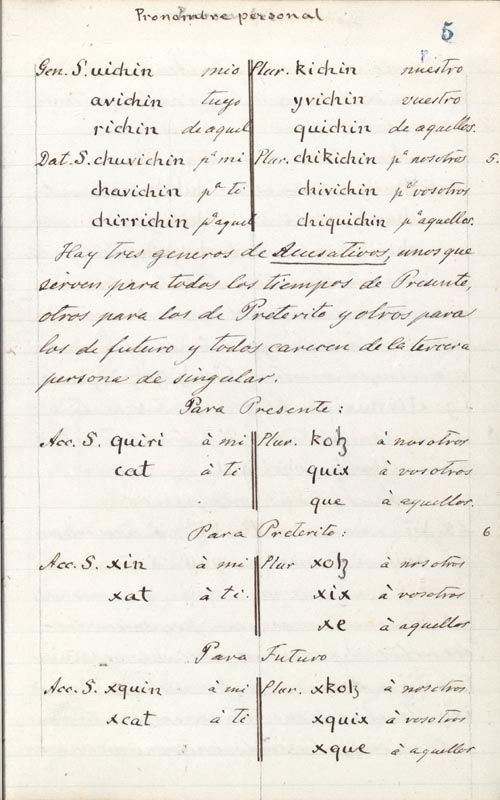 Pronombre personal
5
Gen. S. vichin mio Plur. kichin nuestro
avichin tuyo yvichin vuestro
richin de aquel quichin de aquellos.
Dat. S. chuvichin pa mi Plur. chikichin pa nosotros 5.
chavichin pa ti chivichin pa vosotros
chirrichin pa aquel chiquichin pa aquellos.
Hay tres generos de Acusativos, unos que
sirven para todos los tiempos de Presente,
otros para los de Preterito y otros para
los de futuro y todos carecen de la tercera
persona de singular.
Para Presente:
Acc. S. quiri à mi Plur. koꜫ à nosotros
cat à ti quix à vosotros
que à aquellos.
Para Preterito: 6
Acc. S. xin à mi Plur xoꜫ à nosotros
xat à ti. xix à vosotros
xe à aquellos
Para Futuro
Acc. S. xquin à mi Plur. xkoꜫ à nosotros.
xcat à ti xquix à vosotros
xque à aquellos